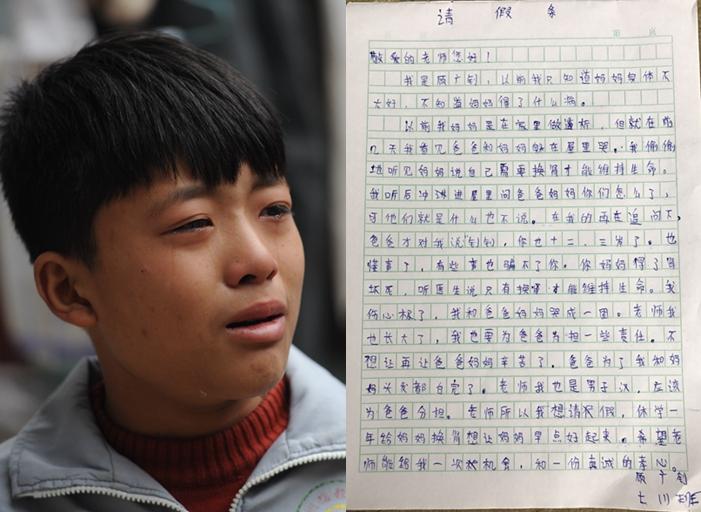 请假条
敬爱的老师您好！
我是广钊，以前我只知道妈妈身体不
太好，不知道妈妈得了什么病。
以前我妈妈是在家里做透析，但就在前
几天我看见爸爸和妈妈躲在屋里哭。我偷偷
地听见妈妈说自己需要换肾才能维持生命。
我听后冲进进屋里问爸爸妈妈你们怎么了，
可他们就是什么也不说。在我的再在追问下，
爸爸才对我说钊钊，你也十二、三岁了。也
懂事了，有些事也骗不了你。你妈妈得了肾
坏死，听医生说只有换肾才能维持生命。我
伤心极了，我和爸爸妈妈哭成一团。老师我
也长大了，我也要为爸爸为担一些责任。不
想让再让爸爸妈妈辛苦了。爸爸为了我和妈
妈头发都白完了。老师我也是男子汉，应该
为爸爸分担。老师所以我想请假，休学一
年给妈妈换肾想让妈妈早点好起来。希望老
师能给我一次救机会，和一份真诚的孝心。
广钊
七(1)班